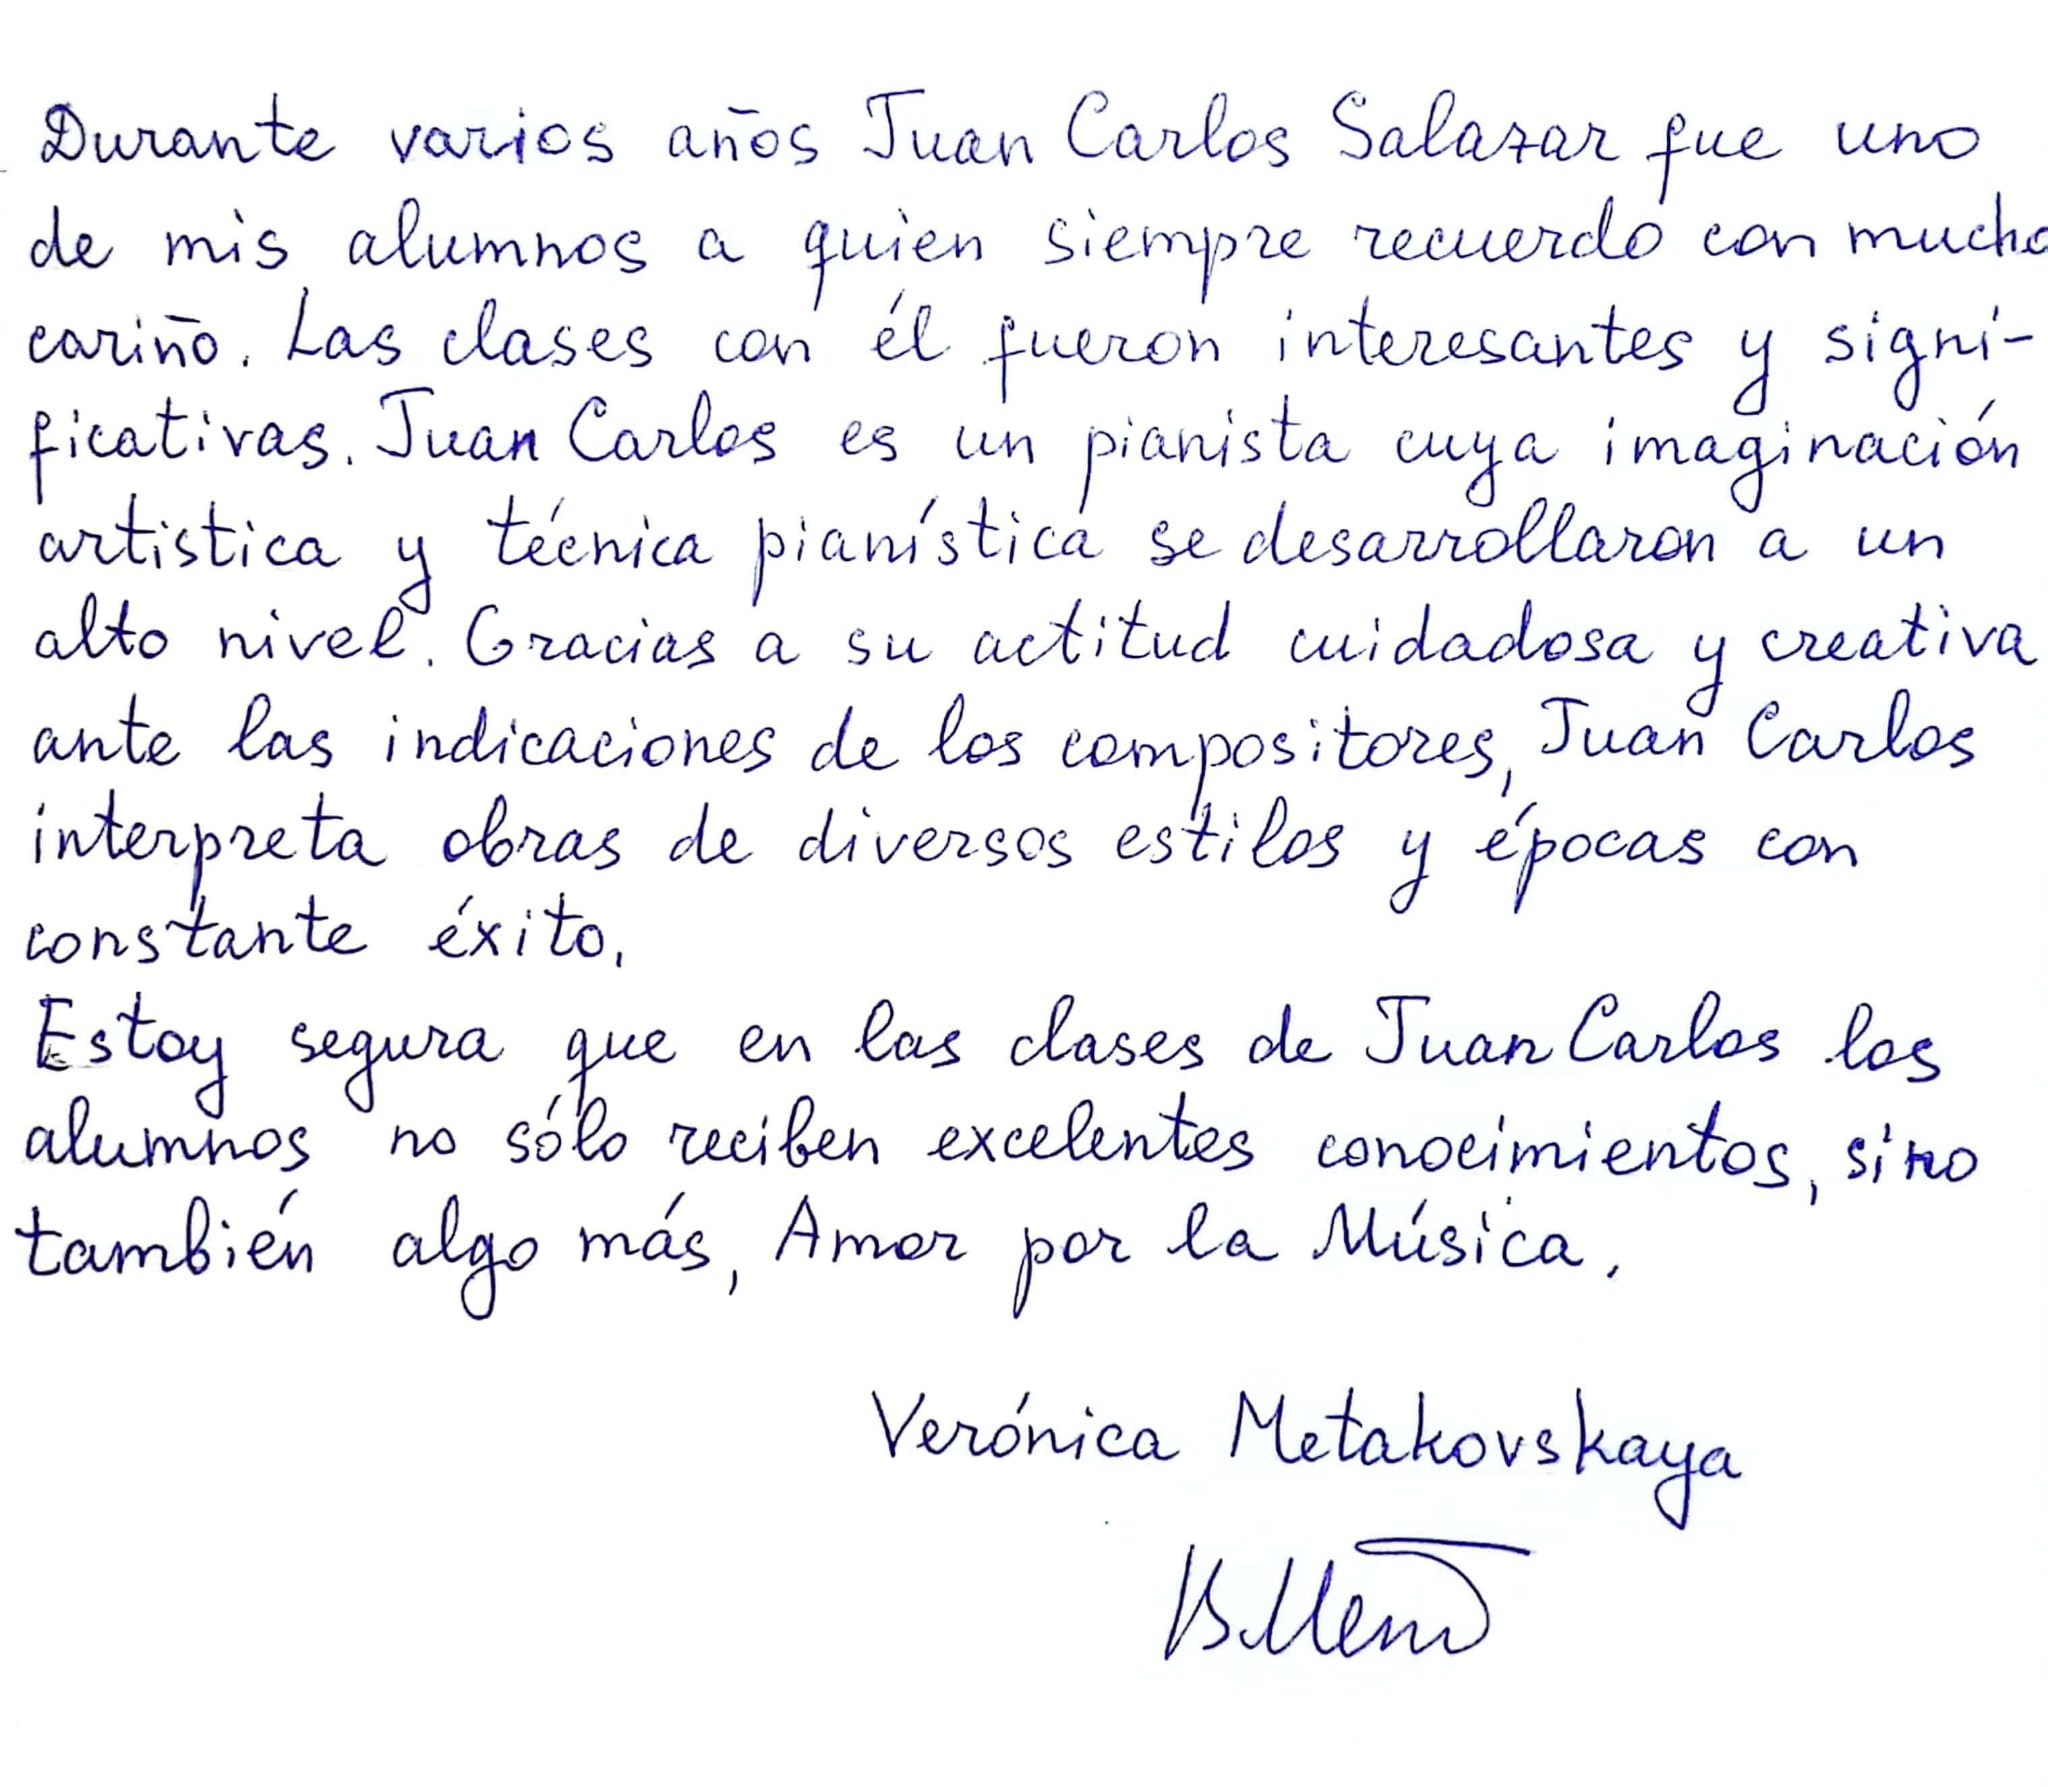 Durante varios años Juan Carlos Salazar fue uno
de mis alumnos a quien siempre recuerdo con mucho
cariño. Las clases con él fueron interesantes y signi-
ficativas. Juan Carlos es un pianista cuya imaginación
artistica y técnica pianística se desarrollaron a un
alto nivel. Gracias a su actitud cuidadosa y creativa
ante las indicaciones de los compositores, Juan Carlos
interpreta obras de diversos estilos y épocas con
constante éxito.
Estoy segura que en las clases de Juan Carlos los
alumnos no sólo reciben excelentes conocimientos, sino
también algo más, Amor por la Música.
Verónica Metakovskaya